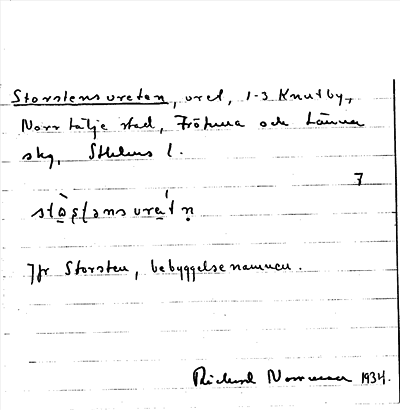 Storstensvreten, vret, 1-3 Knutby,
Norrtälje stad, Frötuna och Länna
skg, Sthlms l.
7
Jfr Storsten, bebyggelsenamnen.
Rickard 1934.